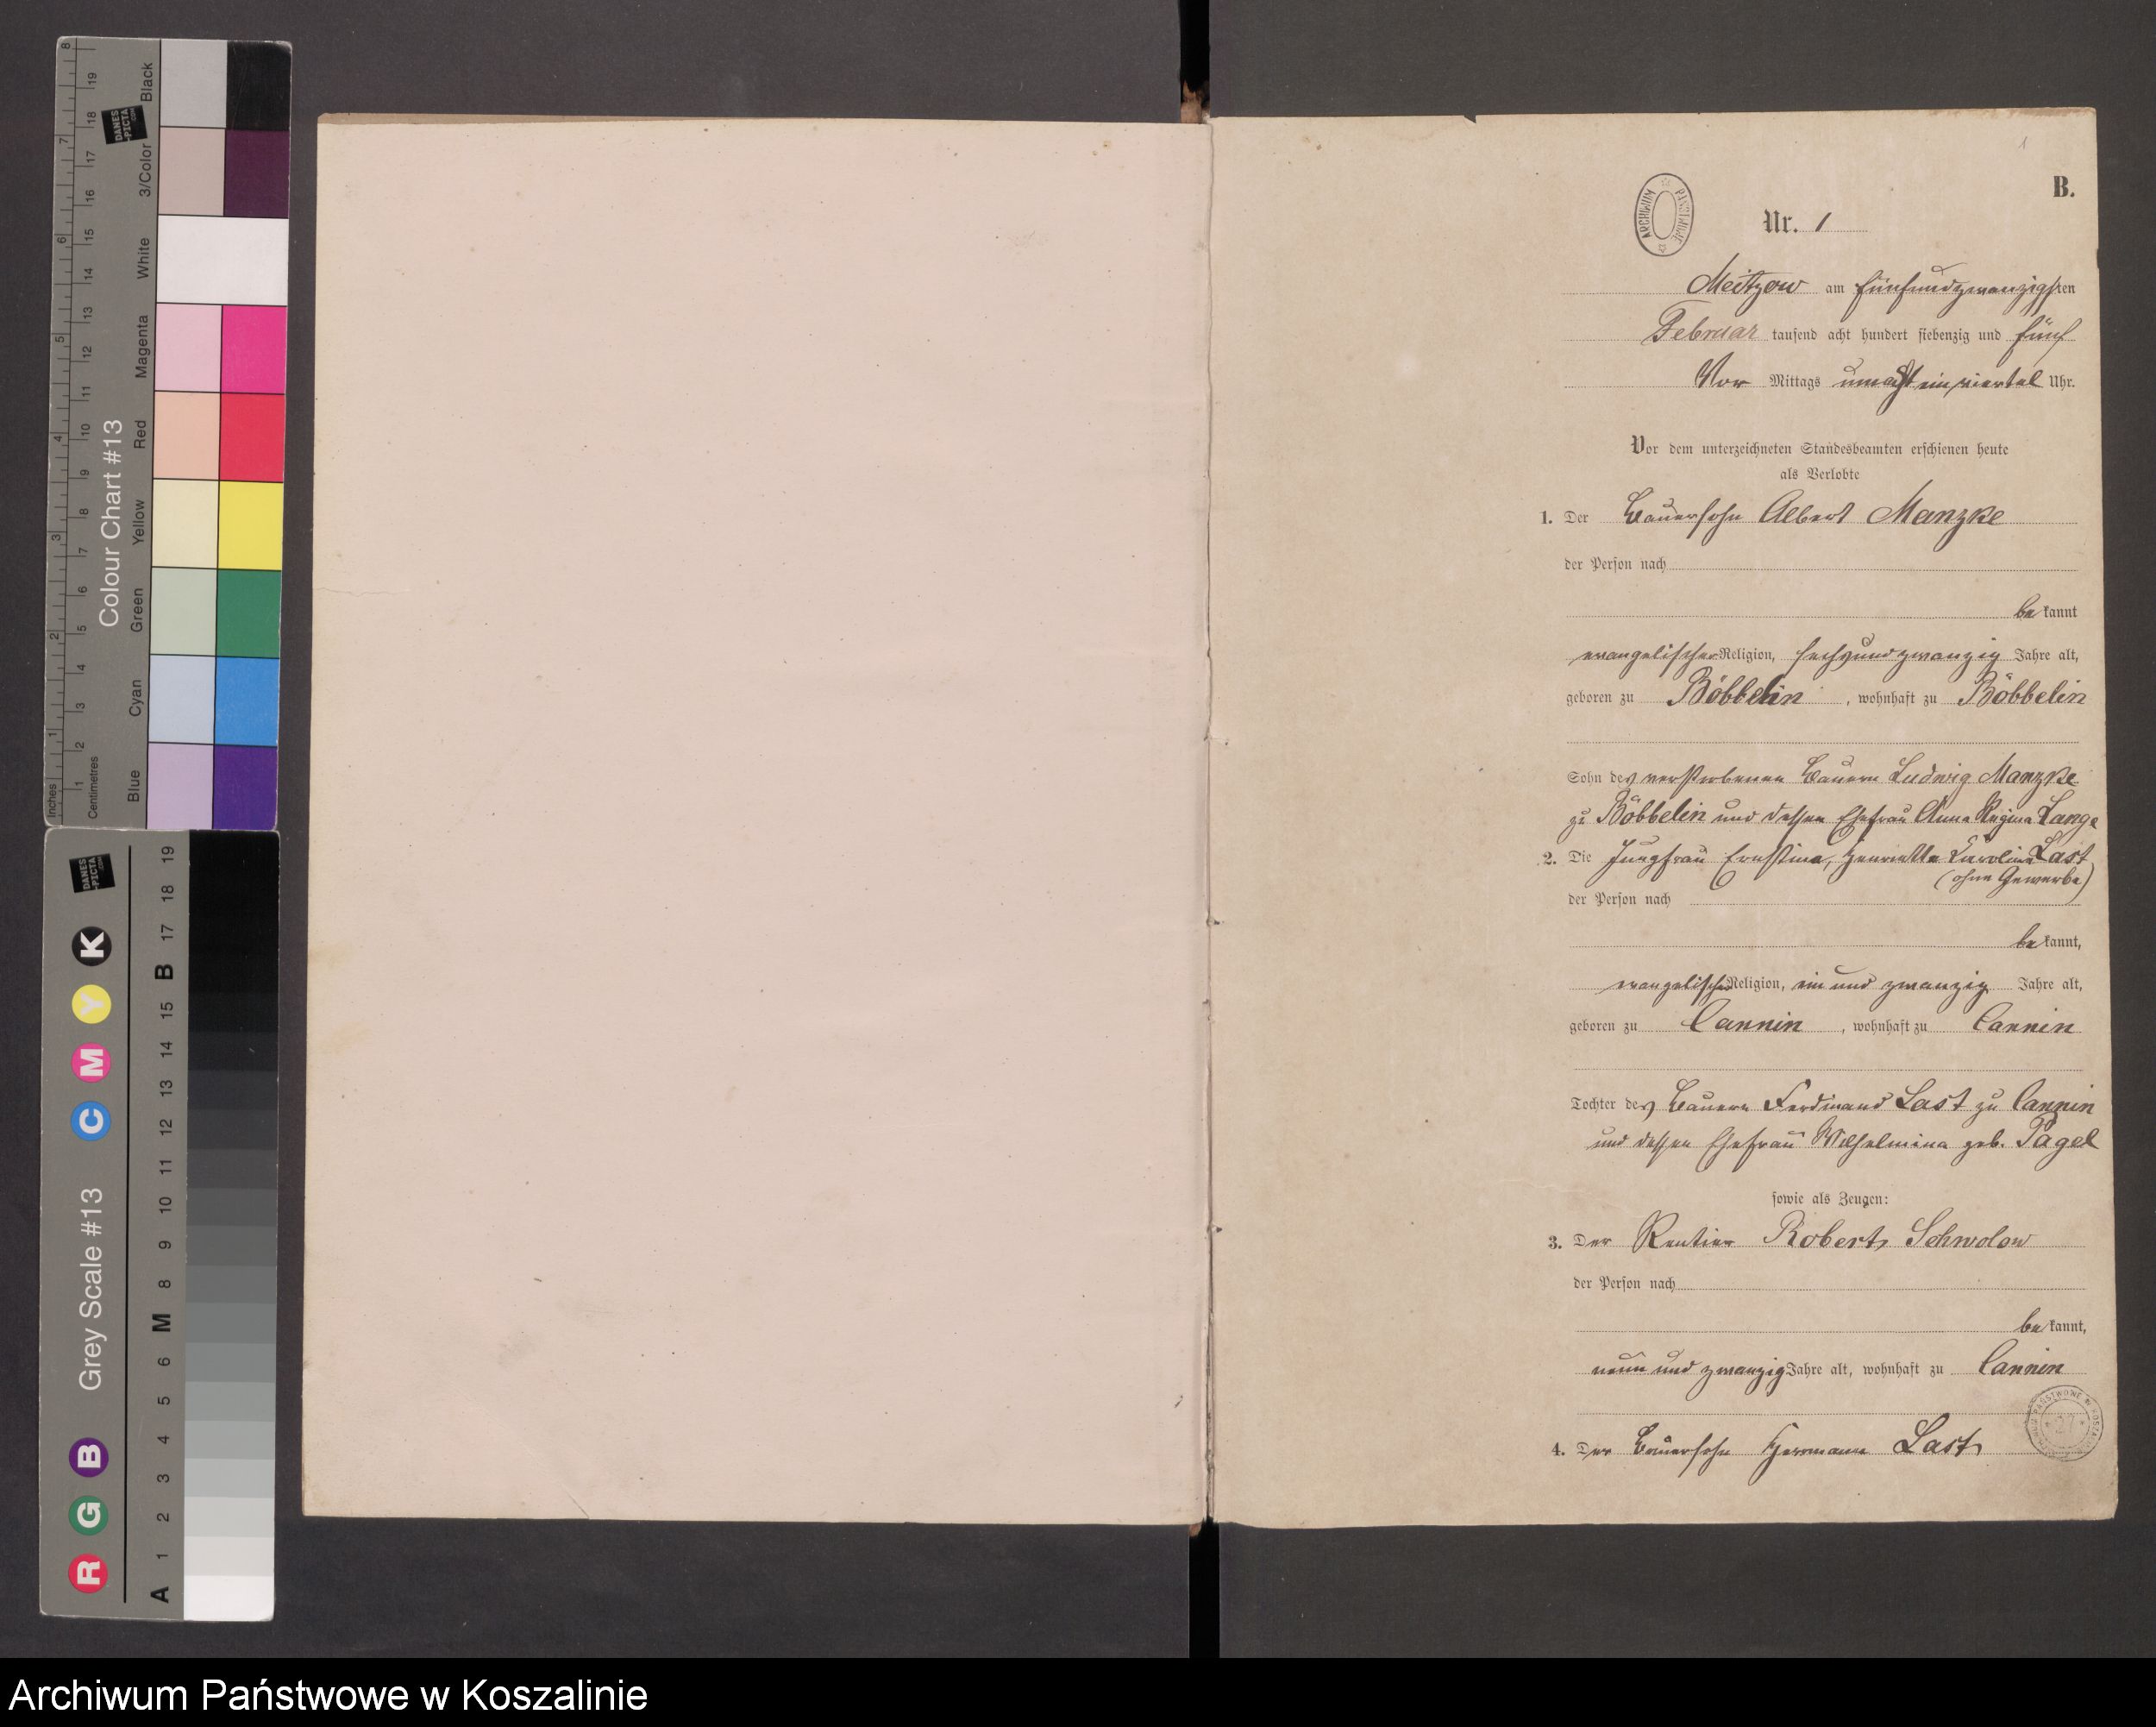 B.
Nr. 1
Meitzow am fünfundzwanzigsten
Februar tausend acht hundert siebenzig und fünf
Vor Mittags um acht ein viertel Uhr.
Vor dem unterzeichneten Standesbeamten erschienen heute
als Verlobte
1. Der Bauersohn Albert Manzke
der Person nach
bekannt
evangelischer Religion, sechsundzwanzig Jahre alt,
geboren zu Böbbelin, wohnhaft zu Böbbelin
Sohn des verstorbenen Bauern Ludwig Manzke
zu Böbbelin und dessen Ehefrau Anna Regina Lange
2. Die Jungfrau Ernstine, Henriette Karoline Last
(ohne Gewerbe)
der Person nach
bekannt,
evangelischer Religion, ein und zwanzig Jahre alt,
geboren zu Cannin, wohnhaft zu Cannin
Tochter des Bauern Ferdinand Last zu Cannin
und dessen Ehefrau Wilhelmine geb. Pagel
sowie als Zeugen:
3. Der Rentier Robert Schwolow
der Person nach
bekannt,
neun und zwanzig Jahre alt, wohnhaft zu Cannin
4. Der Bauersohn Hermann Last
ARCHIWUM PAŃSTWOWE
Inches
Centimetres
Colour Chart #13
Blue Cyan Green Yellow Red Magenta White 3/Color Black
DANES
-PICTA
.COM
Grey Scale #13
R G B C M Y K
A 1 2 3 4 5 6 M 8 9 10 11 12 13 14 15 B 17 18 19
Archiwum Państwowe w Koszalinie